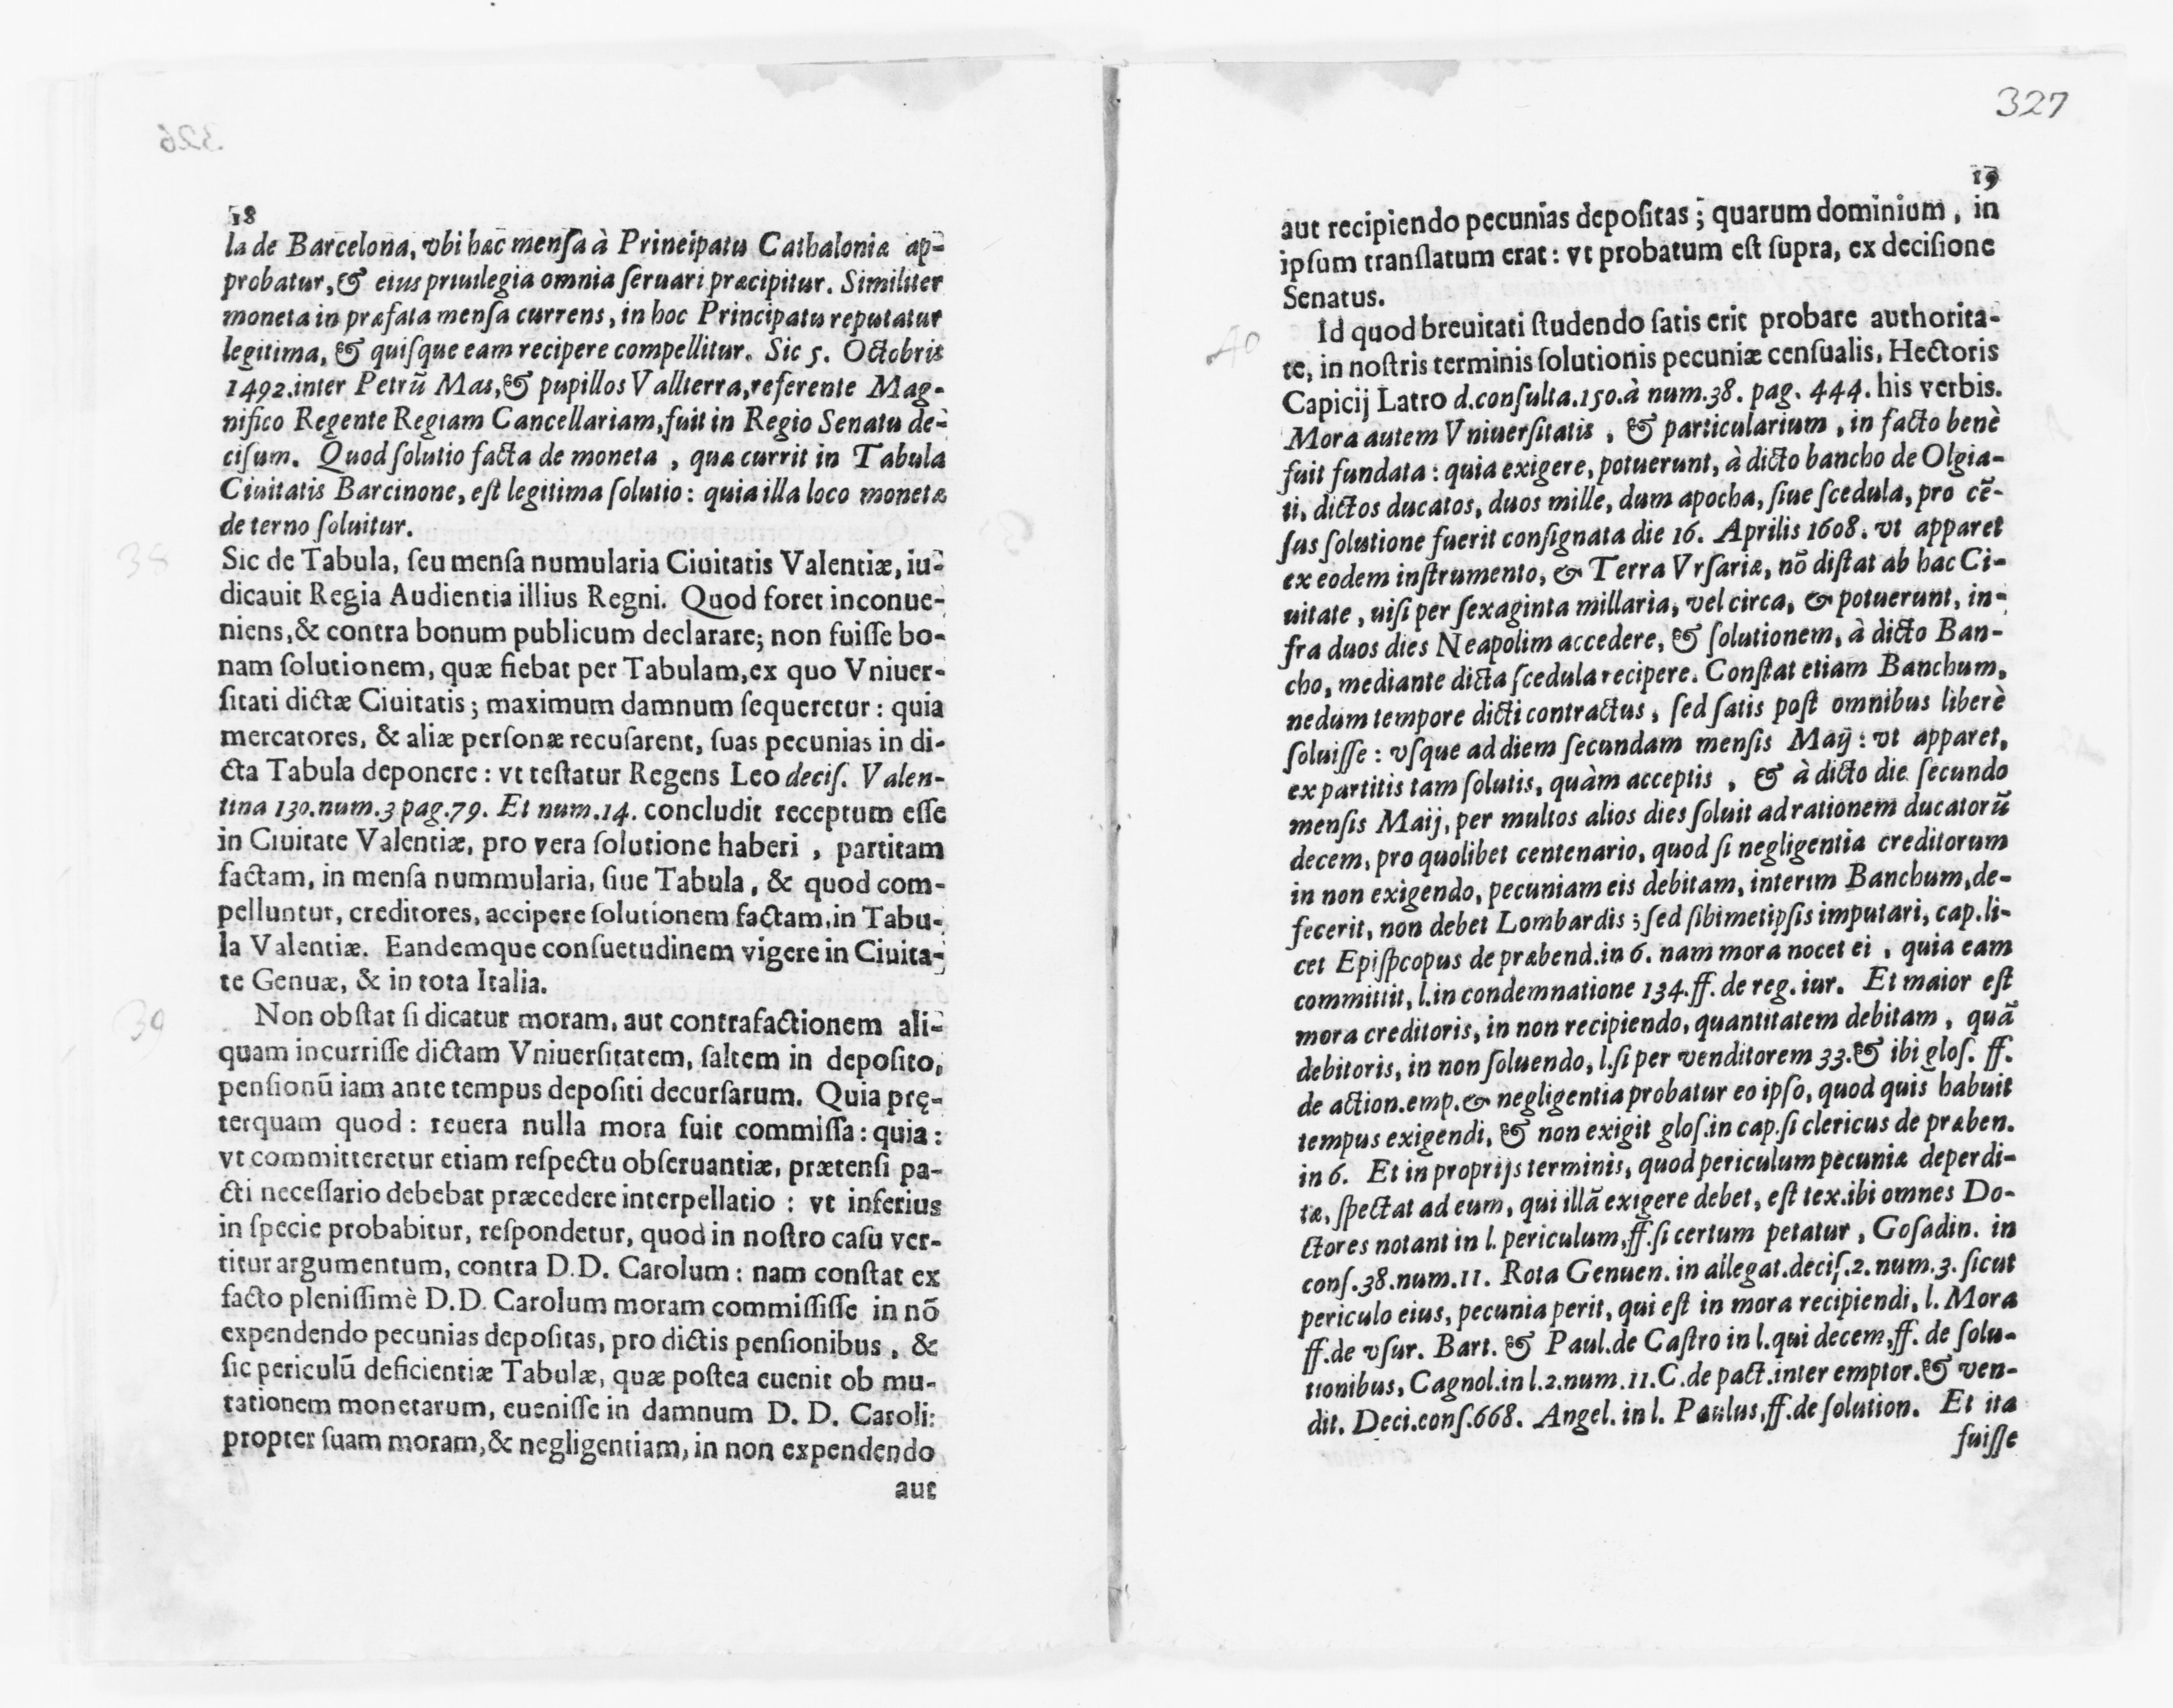 326
18
la de Barcelona, vbi hæc menſa à Principatu Cathaloniæ ap-
probatur, & eius priuilegia omnia ſeruari præcipitur. Similiter
moneta in præfata menſa currens, in hoc Principatu reputatur
legitima, & quiſque eam recipere compellitur. Sic 5. Octobris
1492. inter Petrũ Mas, & pupillos Vallterra, referente Mag-
nifico Regente Regiam Cancellariam, fuit in Regio Senatu de-
ciſum. Quod ſolutio facta de moneta , quæ currit in Tabula
Ciuitatis Barcinone, eſt legitima ſolutio : quia illa loco monetæ
de terno ſoluitur.
38
Sic de Tabula, ſeu menſa numularia Ciuitatis Valentiæ, iu-
dicauit Regia Audientia illius Regni. Quod foret inconue-
niens, & contra bonum publicum declarare; non fuiſſe bo-
nam ſolutionem, quæ fiebat per Tabulam, ex quo Vniuer-
ſitati dictæ Ciuitatis ; maximum damnum ſequeretur : quia
mercatores, & aliæ perſonæ recuſarent, ſuas pecunias in di-
cta Tabula deponere : vt teſtatur Regens Leo deciſ. Valen-
tina 130. num. 3 pag. 79. Et num. 14. concludit receptum eſſe
in Ciuitate Valentiæ, pro vera ſolutione haberi , partitam
factam, in menſa nummularia, ſiue Tabula, & quod com-
pelluntur, creditores, accipere ſolutionem factam, in Tabu-
la Valentiæ. Eandemque conſuetudinem vigere in Ciuita-
te Genuæ, & in tota Italia.
39
Non obſtat ſi dicatur moram, aut contrafactionem ali-
quam incurriſſe dictam Vniuerſitatem, ſaltem in depoſito,
penſionũ iam ante tempus depoſiti decurſarum. Quia prę-
terquam quod : reuera nulla mora fuit commiſſa : quia :
vt committeretur etiam reſpectu obſeruantiæ, prætenſi pa-
cti neceſſario debebat præcedere interpellatio : vt inferius
in ſpecie probabitur, reſpondetur, quod in noſtro caſu ver-
titur argumentum, contra D.D. Carolum : nam conſtat ex
facto pleniſſimè D.D. Carolum moram commiſſiſſe in nõ
expendendo pecunias depoſitas, pro dictis penſionibus , &
ſic periculũ deficientiæ Tabulæ, quæ poſtea euenit ob mu-
tationem monetarum, eueniſſe in damnum D. D. Caroli:
propter ſuam moram, & negligentiam, in non expendendo
aut
327
19
aut recipiendo pecunias depoſitas ; quarum dominium , in
ipſum tranſlatum erat : vt probatum eſt ſupra, ex deciſione
Senatus.
40
Id quod breuitati ſtudendo ſatis erit probare authorita-
te, in noſtris terminis ſolutionis pecuniæ cenſualis, Hectoris
Capicij Latro d. conſulta. 150. à num. 38. pag. 444. his verbis.
Mora autem Vniuerſitatis , & particularium , in facto benè
fuit fundata : quia exigere, potuerunt, à dicto bancho de Olgia-
ti, dictos ducatos, duos mille, dum apocha, ſiue ſcedula, pro cẽ-
ſus ſolutione fuerit conſignata die 16. Aprilis 1608. vt apparet
ex eodem inſtrumento, & Terra Vrſariæ, nõ diſtat ab hac Ci-
uitate , uiſi per ſexaginta millaria, vel circa, & potuerunt, in-
fra duos dies Neapolim accedere, & ſolutionem, à dicto Ban-
cho, mediante dicta ſcedula recipere. Conſtat etiam Banchum,
nedum tempore dicti contractus , ſed ſatis poſt omnibus liberè
ſoluiſſe : vſque ad diem ſecundam menſis Maÿ : vt apparet,
ex partitis tam ſolutis, quàm acceptis , & à dicto die ſecundo
menſis Maij, per multos alios dies ſoluit ad rationem ducatorũ
decem, pro quolibet centenario, quod ſi negligentia creditorum
in non exigendo, pecuniam eis debitam, interim Banchum, de-
fecerit, non debet Lombardis ; ſed ſibimetipſis imputari, cap. li-
cet Epiſpcopus de præbend. in 6. nam mora nocet ei , quia eam
committit, l. in condemnatione 134. ff. de reg. iur. Et maior eſt
mora creditoris, in non recipiendo, quantitatem debitam , quã
debitoris, in non ſoluendo, l. ſi per venditorem 33. & ibi gloſ. ff.
de action. emp. & negligentia probatur eo ipſo, quod quis habuit
tempus exigendi, & non exigit gloſ. in cap. ſi clericus de præben.
in 6. Et in proprijs terminis, quod periculum pecuniæ deperdi-
tæ, ſpectat ad eum, qui illã exigere debet, eſt tex. ibi omnes Do-
ctores notant in l. periculum, ff. ſi certum petatur , Goſadin. in
conſ. 38. num. 11. Rota Genuen. in allegat. deciſ. 2. num. 3. ſicut
periculo eius, pecunia perit, qui eſt in mora recipiendi, l. Mora
ff. de vſur. Bart. & Paul. de Caſtro in l. qui decem, ff. de ſolu-
tionibus, Cagnol. in l. 2. num. 11. C. de pact. inter emptor. & ven-
dit. Deci. conſ. 668. Angel. in l. Paulus, ff. de ſolution. Et ita
fuiſſe